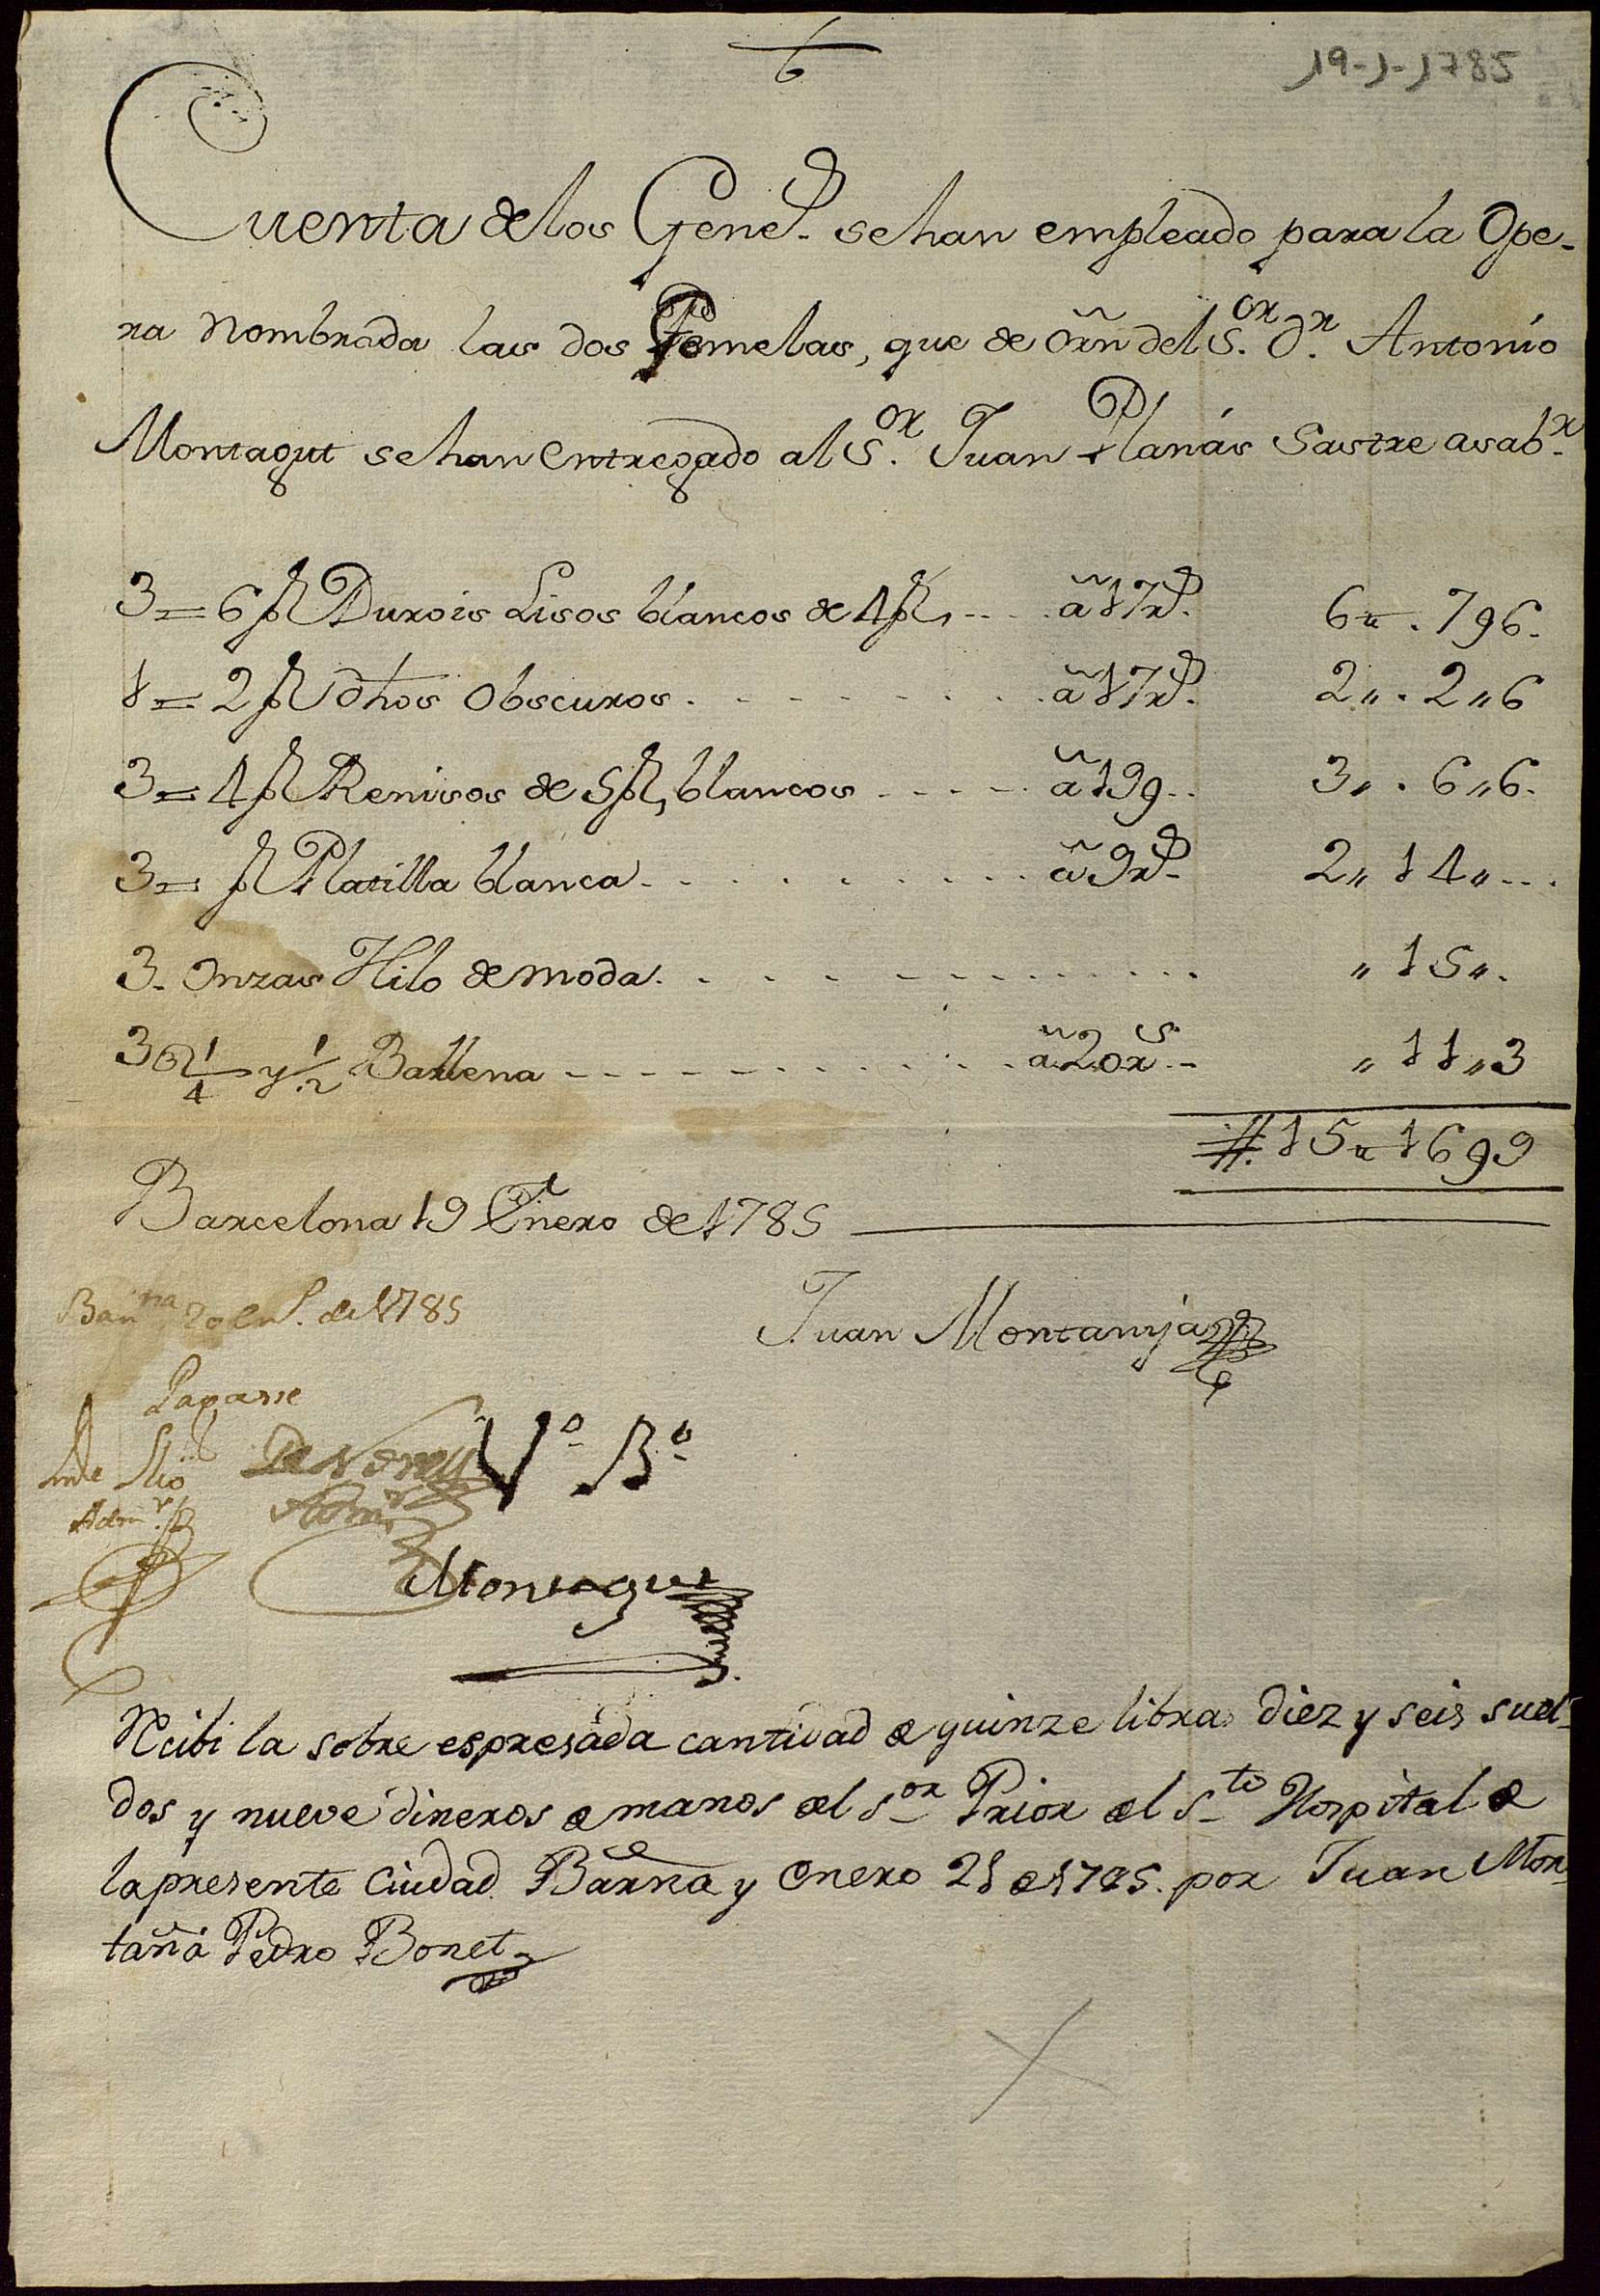 19-1-1785
Cuenta de los Genes. se han empleado para la Ope-
ra Nombrada las dos Gemelas, que de orñ del S.or D.n Antonio
Montagut se han Entregado al S.or Juan Planás Sastre asab.r
3=6 Durois Lisos blancos de 4 a 17rs. 6".796.
1=2 dhos Obscuros a 17rs. 2".2"6
3=4 Renisos de 5 blancos a 199 3".6"6.
3= Platilla blanca a 9rs. 2"14"
3. Onzas Hilo de moda "15".
3 1/4 y 1/2 Ballena a 20rs. "11"3
#.15"1699
Barcelona 19 Enero de 1785
Juan Montanyá
Barna 20 En.º de 1785
Pagarse
Adm.r
Adm.r
V.º B.º
Montagut
Recibi la sobre espresada cantidad de quinze libras diez y seis suel-
dos y nueve dineros de manos del S.or Prior del S.to Hospital de
la presente Ciudad. Barña y Enero 21 de 1785. por Juan Mon-
tañá Pedro Bonet